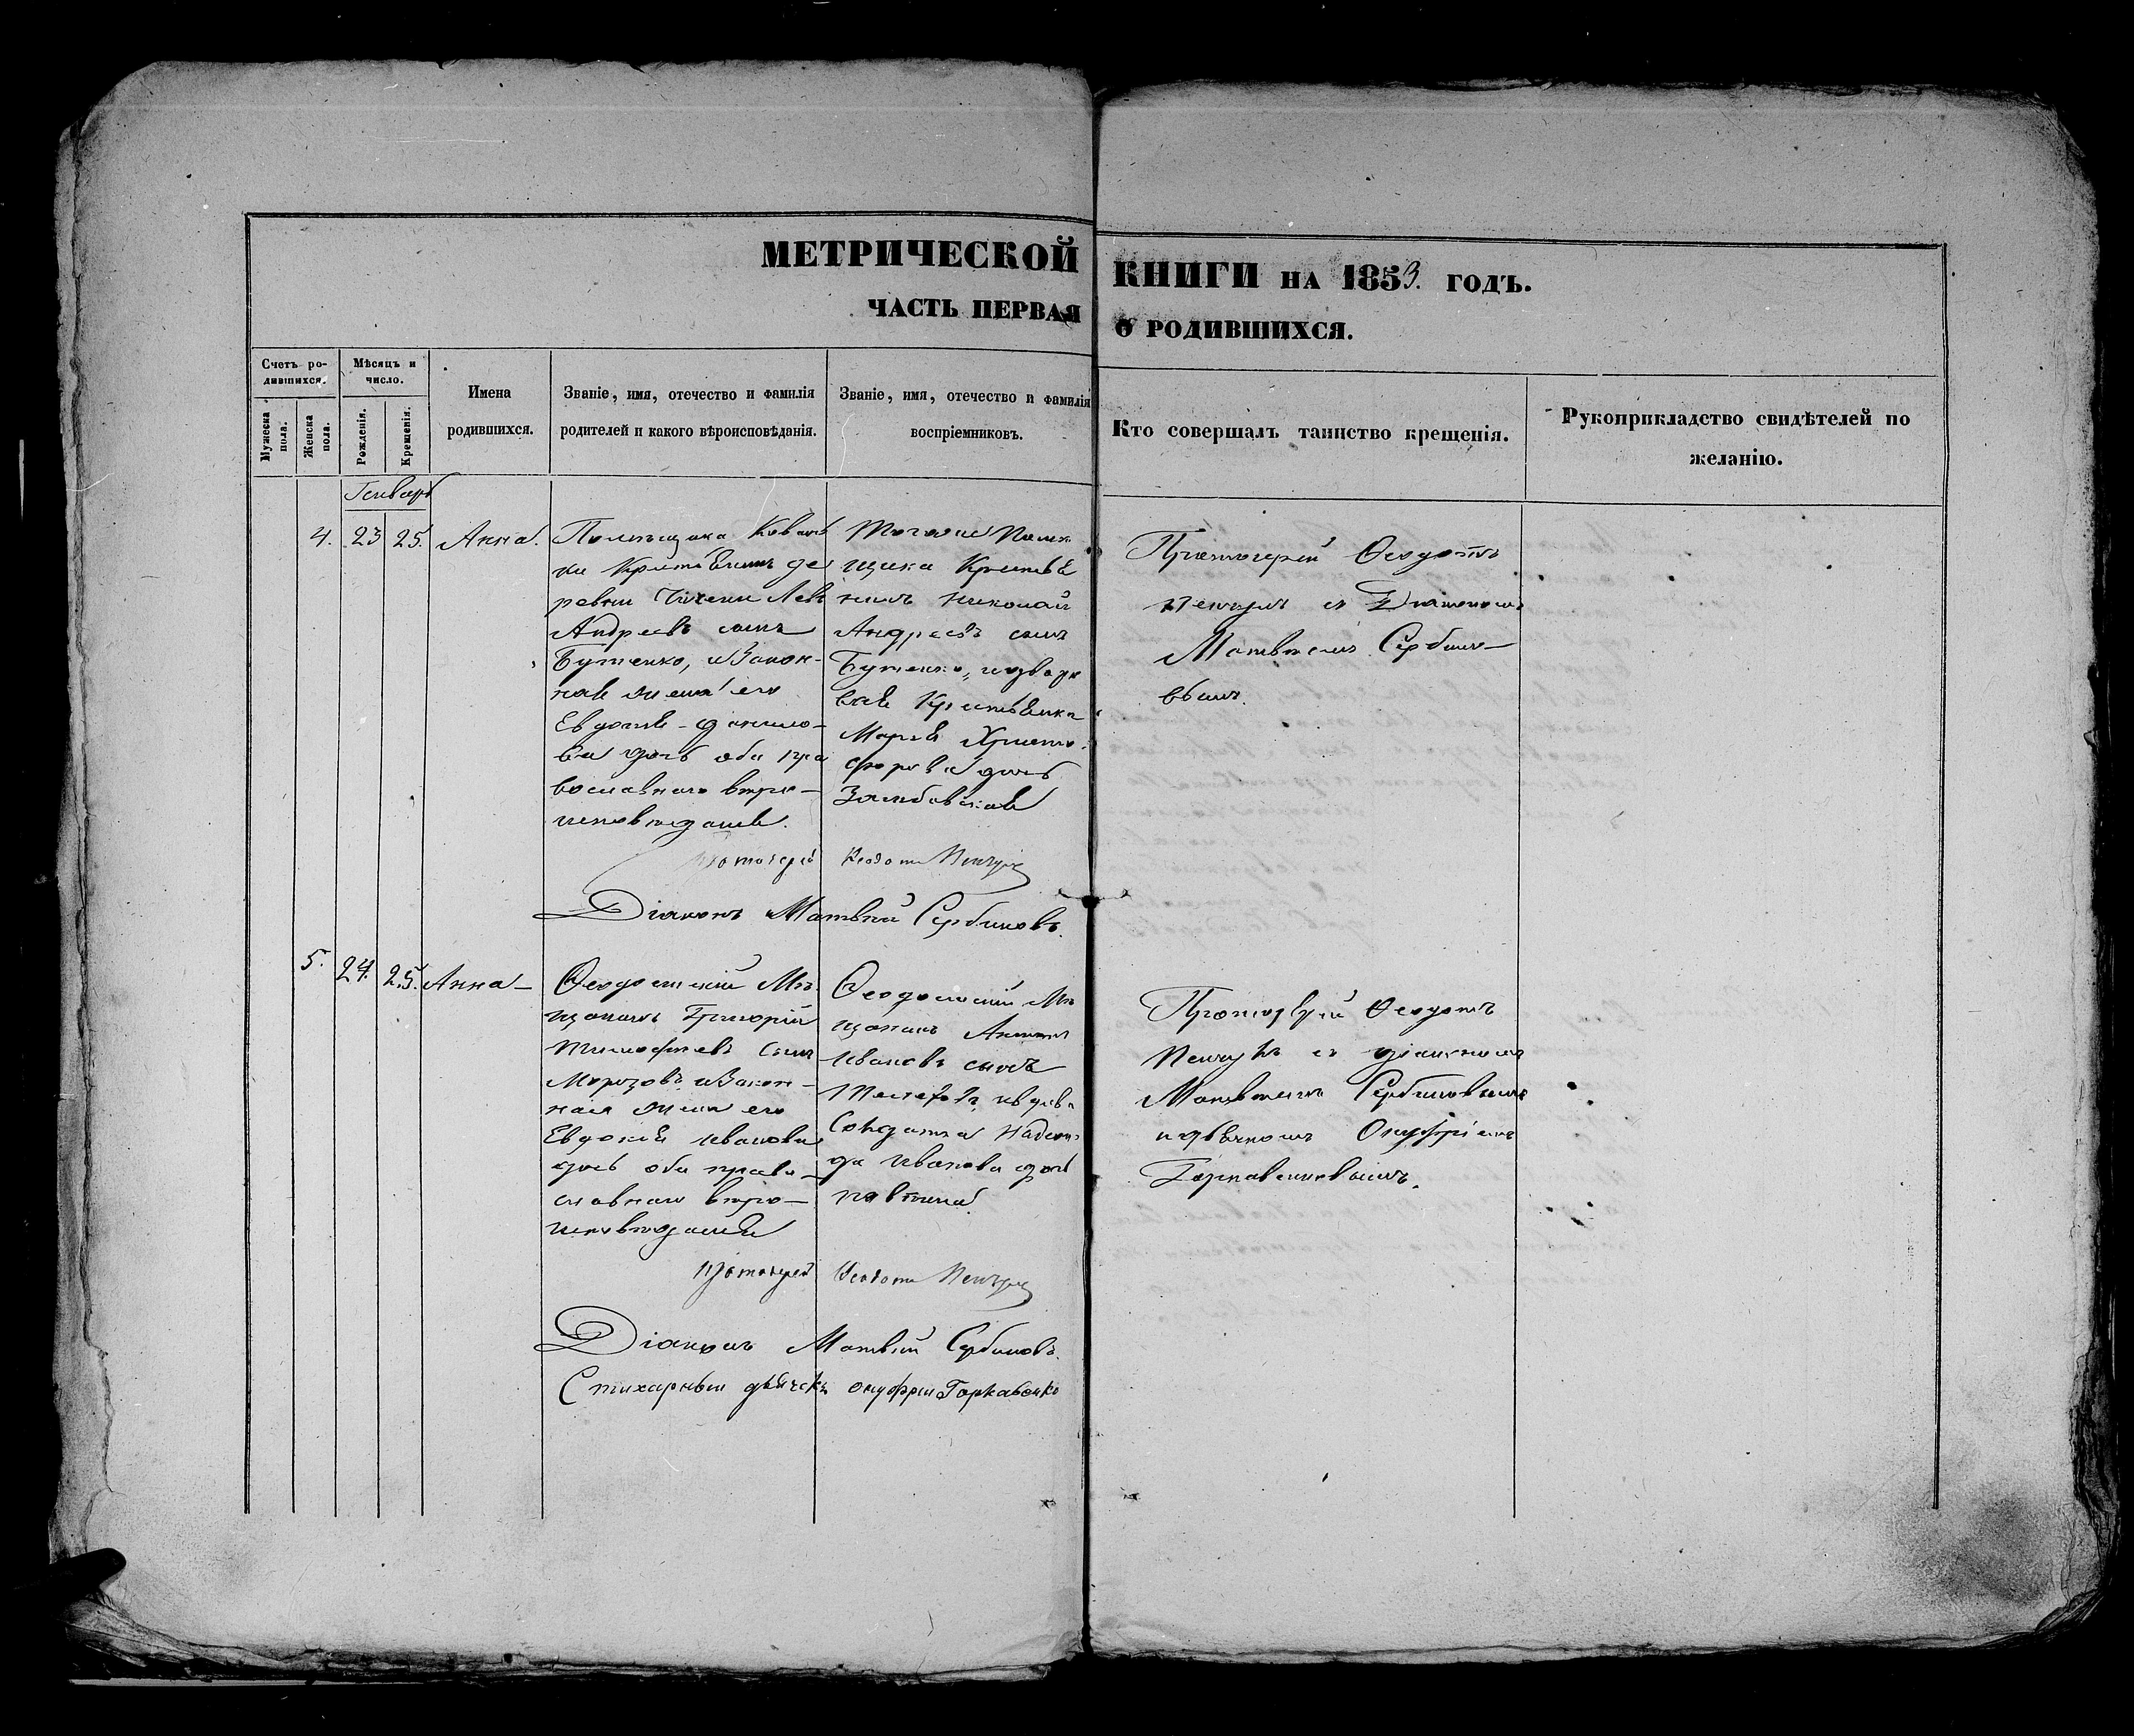 МЕТРИЧЕСКОЙ КНИГИ НА 1853. ГОДЪ.
ЧАСТЬ ПЕРВАЯ О РОДИВШИХСЯ.
Счетъ ро-
дившихся.
Мужеска
пола.
Женска
пола.
Мѣсяцъ и
число.
Рожденія.
Крещенія.
Имена
родившихся.
Званіе, имя, отечество и фамилія
родителей и какого вѣроисповѣданія.
Званіе, имя, отечество и фамилія
воспріемниковъ.
Кто совершалъ таинство крещенія.
Рукоприкладство свидѣтелей по
желанію.
Генварь
4. 23 25. Анна.
Помѣщика
ки Крестьянинъ де
ревни Левъ
Андреевъ сынъ
Бутенко, и Закон-
ная жена его
Евдокія Данило-
ва дочь оба пра
вославнаго вѣро-
исповѣданія.
Тогоже Помѣ
щика Крестья
нинъ Николай
Андреевъ сынъ
Бутенко, и
Крестьянка
Марья Христо-
форова дочь
Протоіерей Феодотъ
съ Діакономъ
Матвѣемъ Сербино-
вымъ.
Протоіерей Феодотъ
Діаконъ Матвѣй Сербиновъ.
5. 24. 25. Анна
Феодосійскій Мѣ
щанинъ Григорій
Тимофѣевъ сынъ
Морозовъ и Закон-
ная жена его
Евдокія Иванова
дочь оба право-
славнаго вѣро-
исповѣданія
Феодосійскій Мѣ
щанинъ
Ивановъ сынъ
и вдова
Солдатка Надеж-
да Иванова дочь
Протоіерей Феодотъ
съ діакономъ
Матвѣемъ Сербиновымъ
и дьячкомъ Онуфріемъ
Горкавенковымъ.
Протоіерей Феодотъ
Діаконъ Матвѣй Сербиновъ.
Стихарный дьячекъ Онуфрій Горкавенко